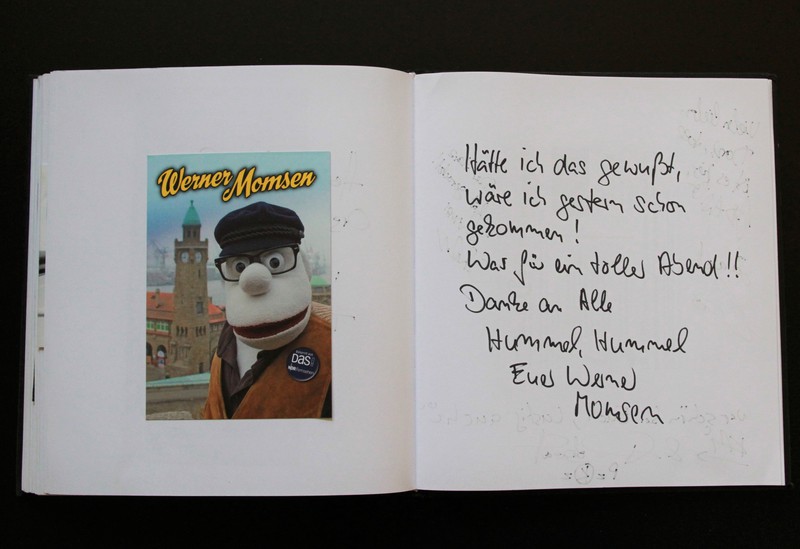 Werner Momsen
DAS!
Hätte ich das gewußt,
wäre ich gestern schon
gekommen!
Was für ein toller Abend!!
Danke an Alle
Hummel, Hummel
Euer Werner
Momsen